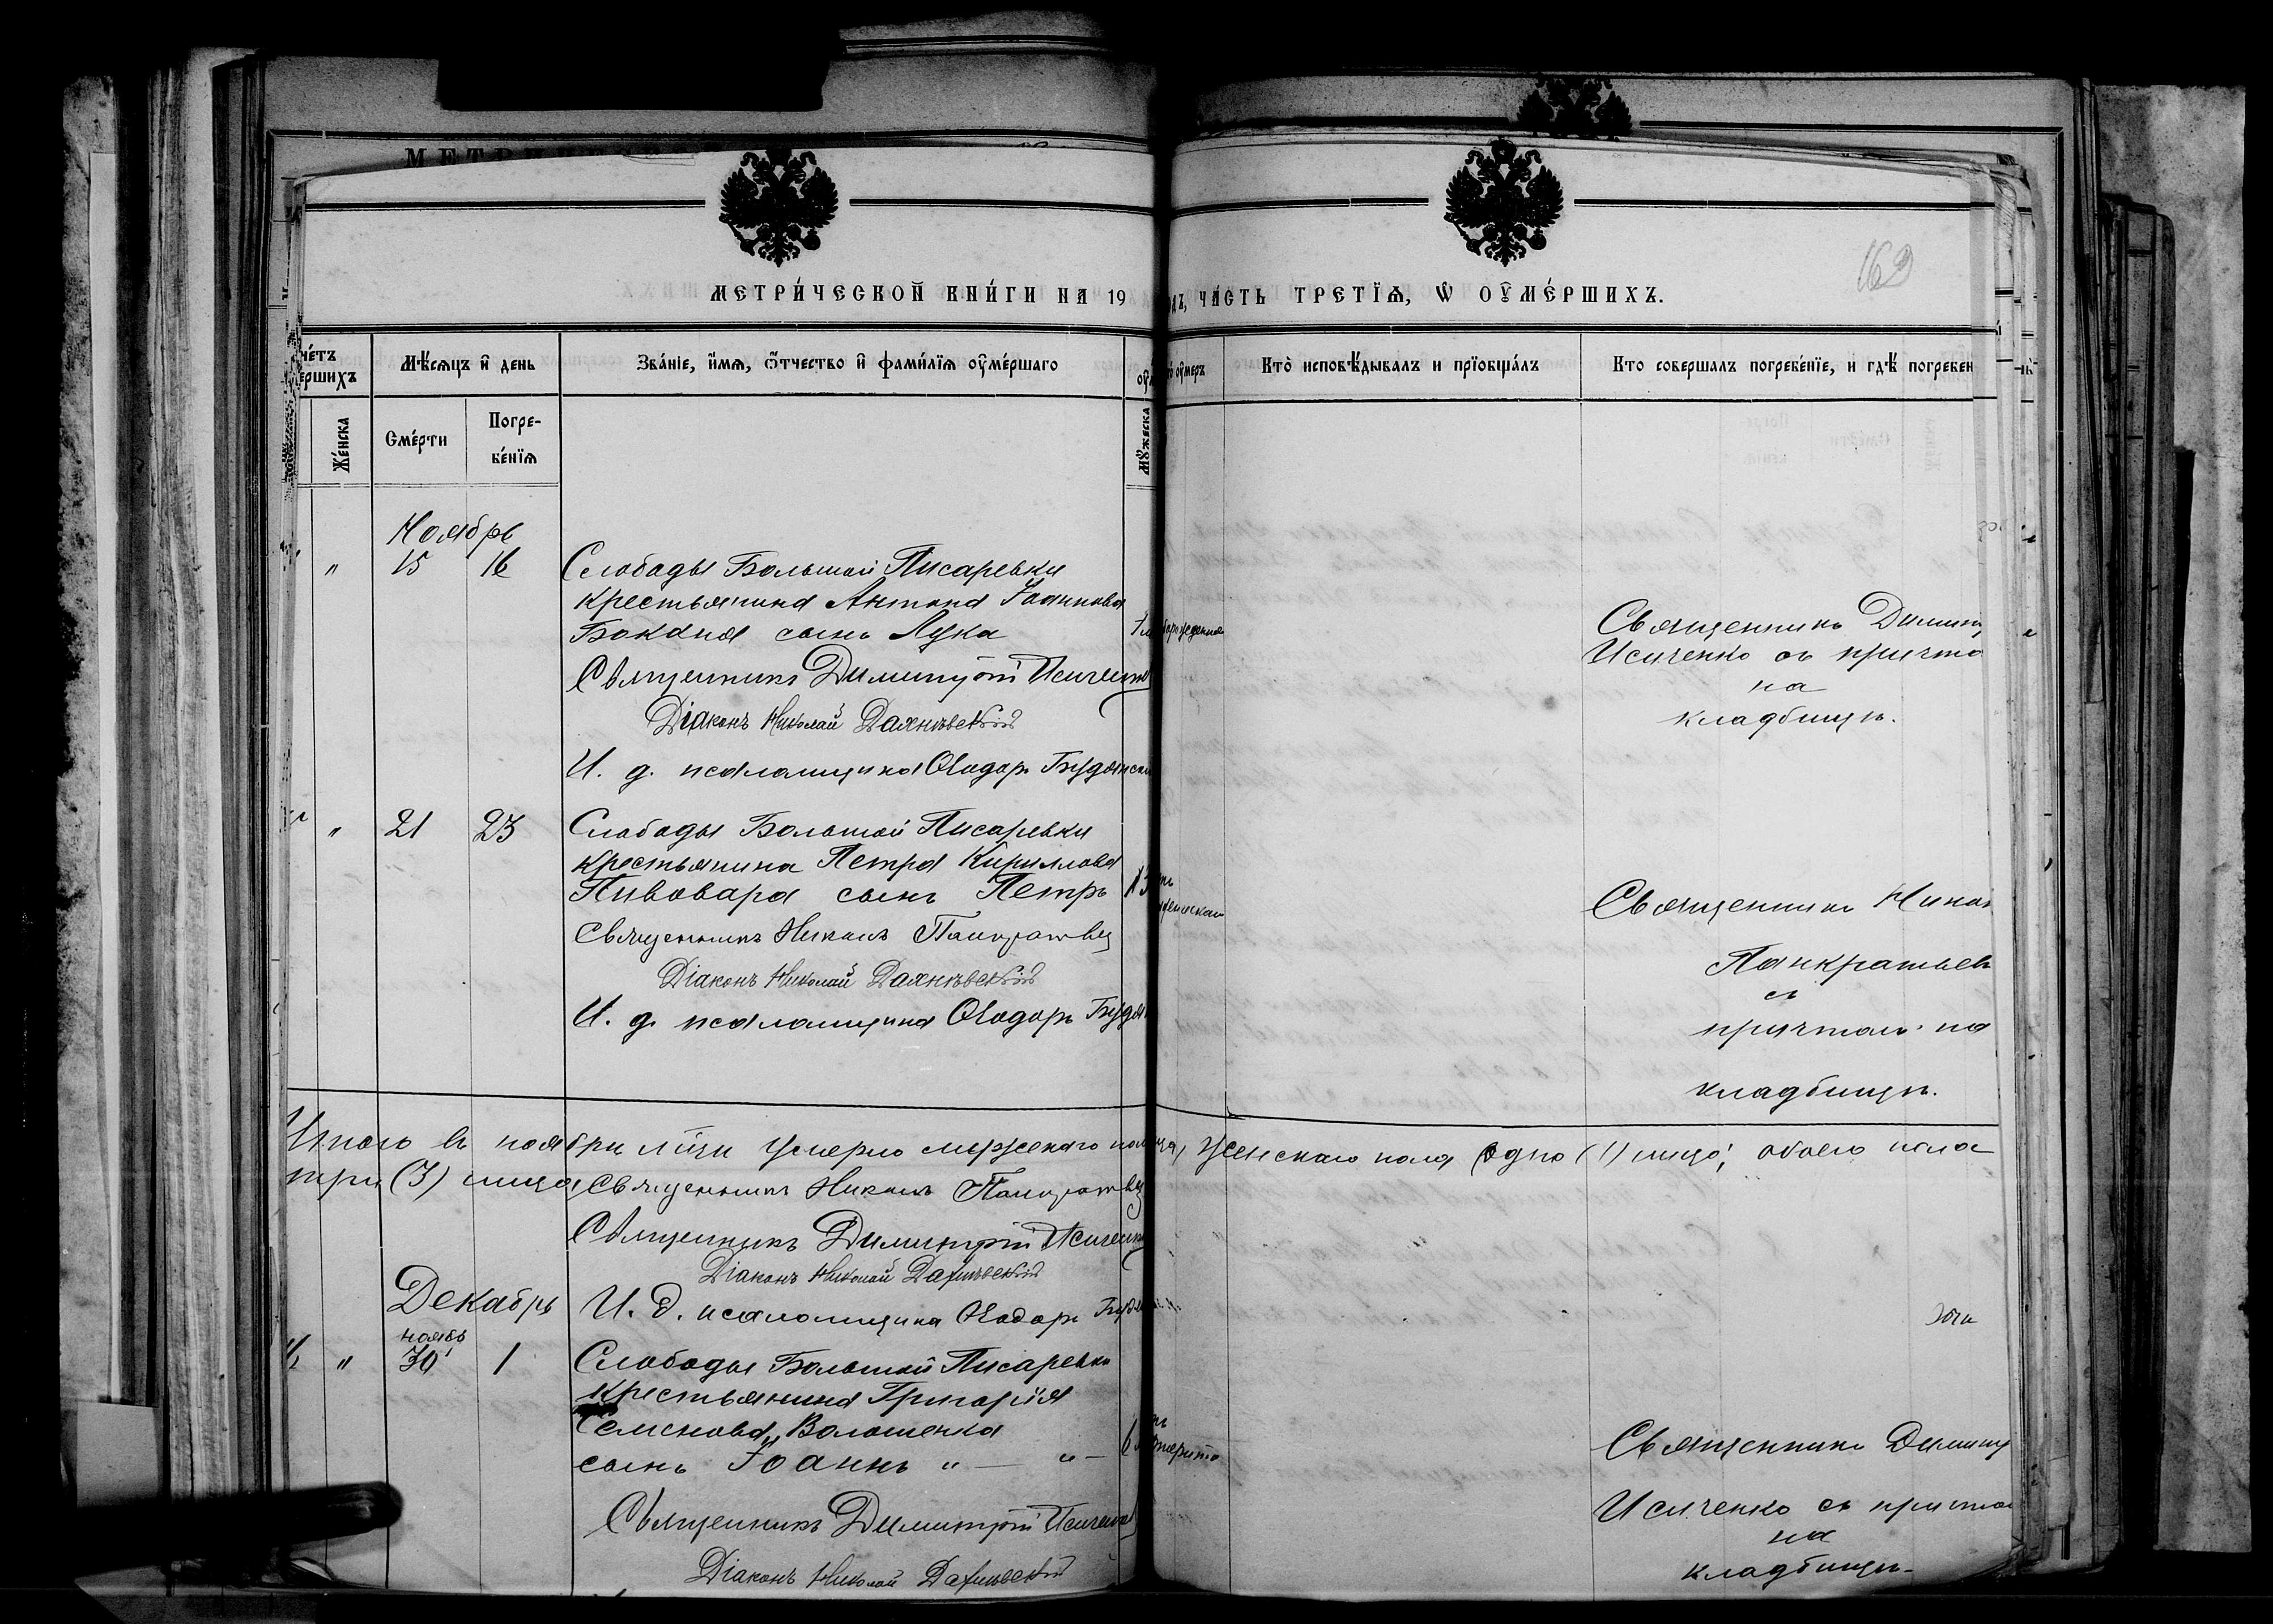 МЕТРИ́ЧЕСКОЙ КНИ́ГИ НА 19
ЧА́СТЬ ТРЕТЇѦ, Ѡ ОУМЕ́РШИХЪ.
162
Мѣ́сѧцъ и҆ день
Зва́нїе, и҆́мѧ, ѻ҆́тчество и҆ фами́лїѧ оумє́ршаго
оумеръ
Кто̀ исповѣ́дывалъ и прїобща́лъ
Кто совершалъ погребе́нїе, и гдѣ́ погребен
Же́нска
Сме́рти
Погре-
бе́нїѧ
Му́жеска
Ноябрь
" 15 16 Слободы Большой Писаревки
крестьянина Антона Іоаннова
Бокдня сынъ Лука
Священникъ Димитрій Исиченко
Діаконъ Николай
И. д. псаломщика Ѳеодоръ Будянск
Священникъ Димит
Исиченко съ причто
на
кладбищѣ.
" 21 23 Слободы Большой Писаревки
крестьянина Петра Кириллова
Пивовара сынъ Петръ
Священникъ Никаноръ Панкратьев
Діаконъ Николай
И. д. псаломщика Ѳеодоръ Будян
Священникъ Никан
Панкратьев
съ
причтомъ на
кладбищѣ.
Итого въ ноябрѣ м-цѣ умерло мужескаго женскаго пола одно (1) лицо, обоего пола
три (3) лица
Священникъ Никаноръ Панкратьев
Священникъ Димитрій Исиченко
Діаконъ Николай
И. д. псаломщика Ѳеодоръ
Декабрь
ноябр
" 30 1 Слободы Большой Писаревки
крестьянина Григорія
Семенова Волошенка
сынъ Іоаннъ " — " —
Священникъ Димитрій Исиченко
Діаконъ Николай
Священникъ Димит
Исиченко съ причто
на
кладбищѣ.